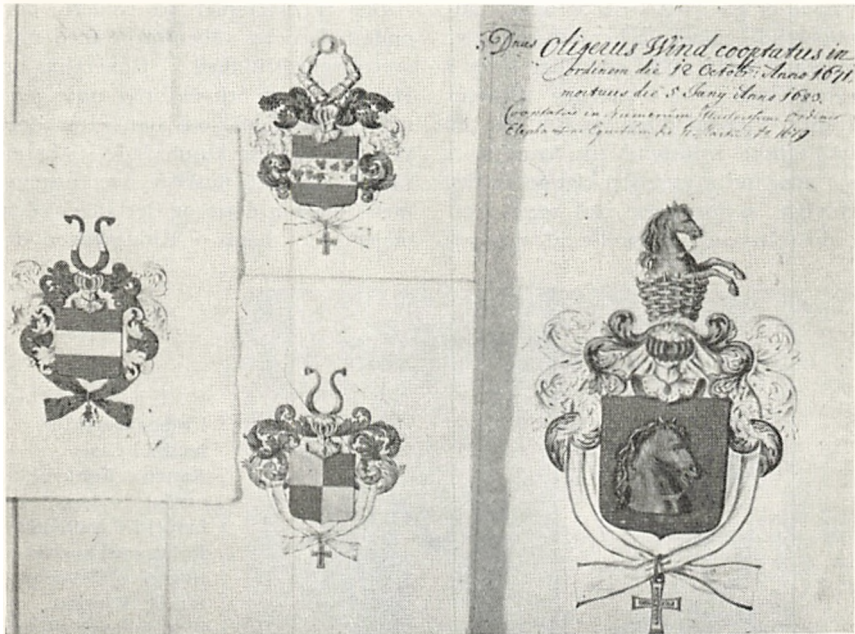 5. Dnus Oligerus Wind cooptatus in
ordinem die 12 Octobr: Anno 1671.
mortuus die 5 Jany Anno 1683.
Cooptatus in Numerum Illustrissimi Ordinis
Elephantini Equitum die 1679